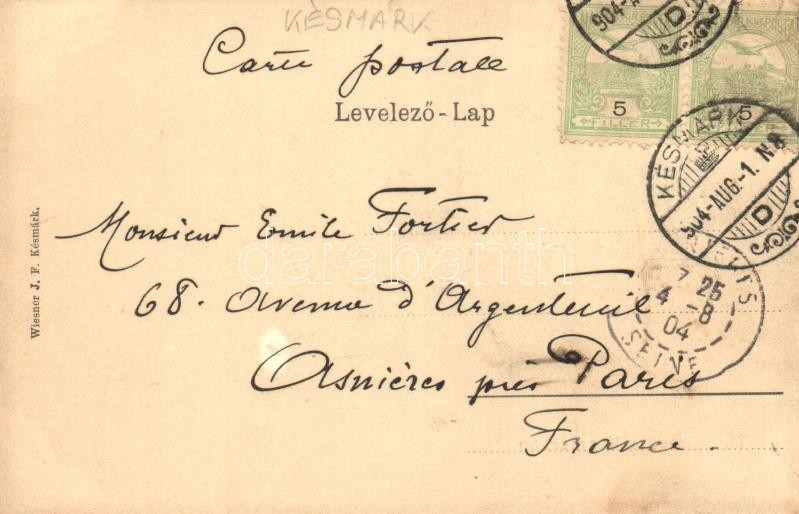 KÉSMÁRK
Carte postale
Levelező-Lap
5
FILLÉR
5
904-A
D
KÉSMÁRK
904-AUG.-1. N8
D
7 25
4 -8
04
SEINE
Monsieur Emile Fortier
68. Avenue d'Argenteuil
Asnières près Paris
France.
Wiesner J. F. Késmárk.
darabanth